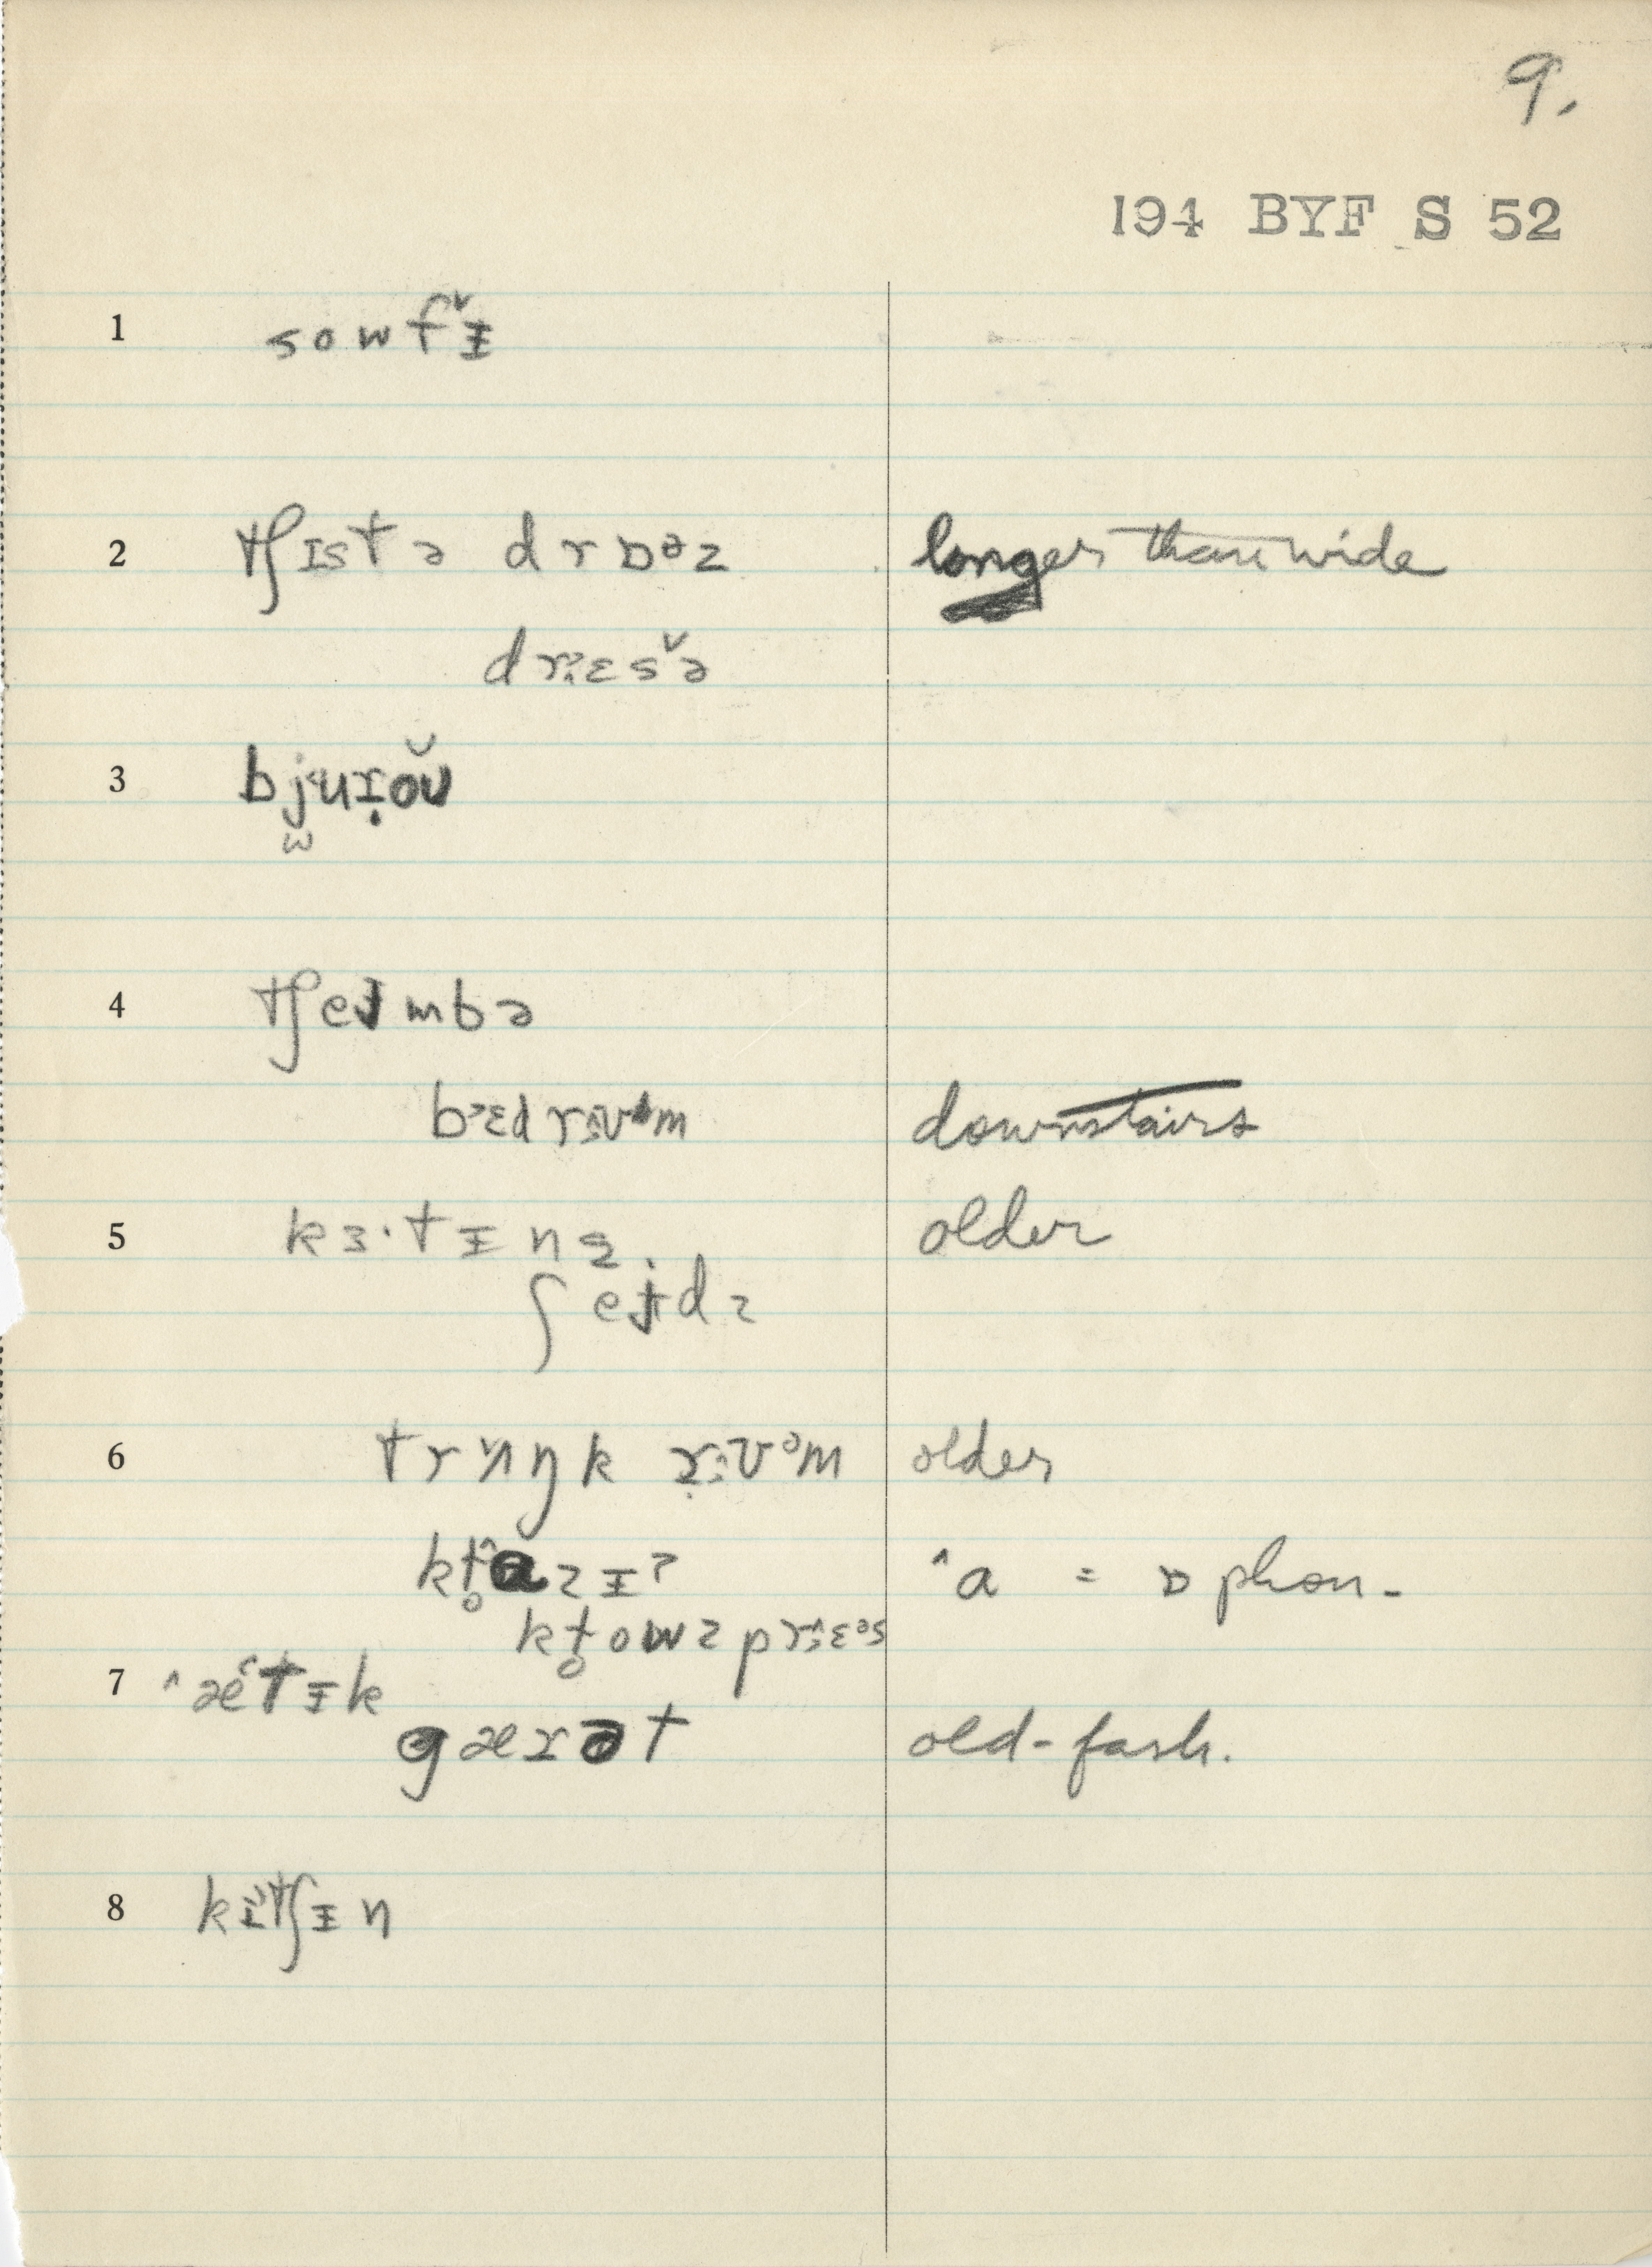 9.
194 BYF S 52
1 sowfᵛᵻ
2 tʃɪstə drɒᶿz longer than wide
drᵊɛsᵛə
3 bjuɪ̣oŭ
w
4 tʃeɪmbə
bᵊɛdrᵿᵊm downstairs
5 kɜ·tᵻnz older
ʃeɪdz
6 trʌŋk rᵿᵊm older
kl̥ᶺɑzᵻ? ᶺa = ɒ phon.
kl̥owzprᵊɛᵊs
7 ᶺætᵻk
gærət old-fash.
8 kɪtʃᵻn